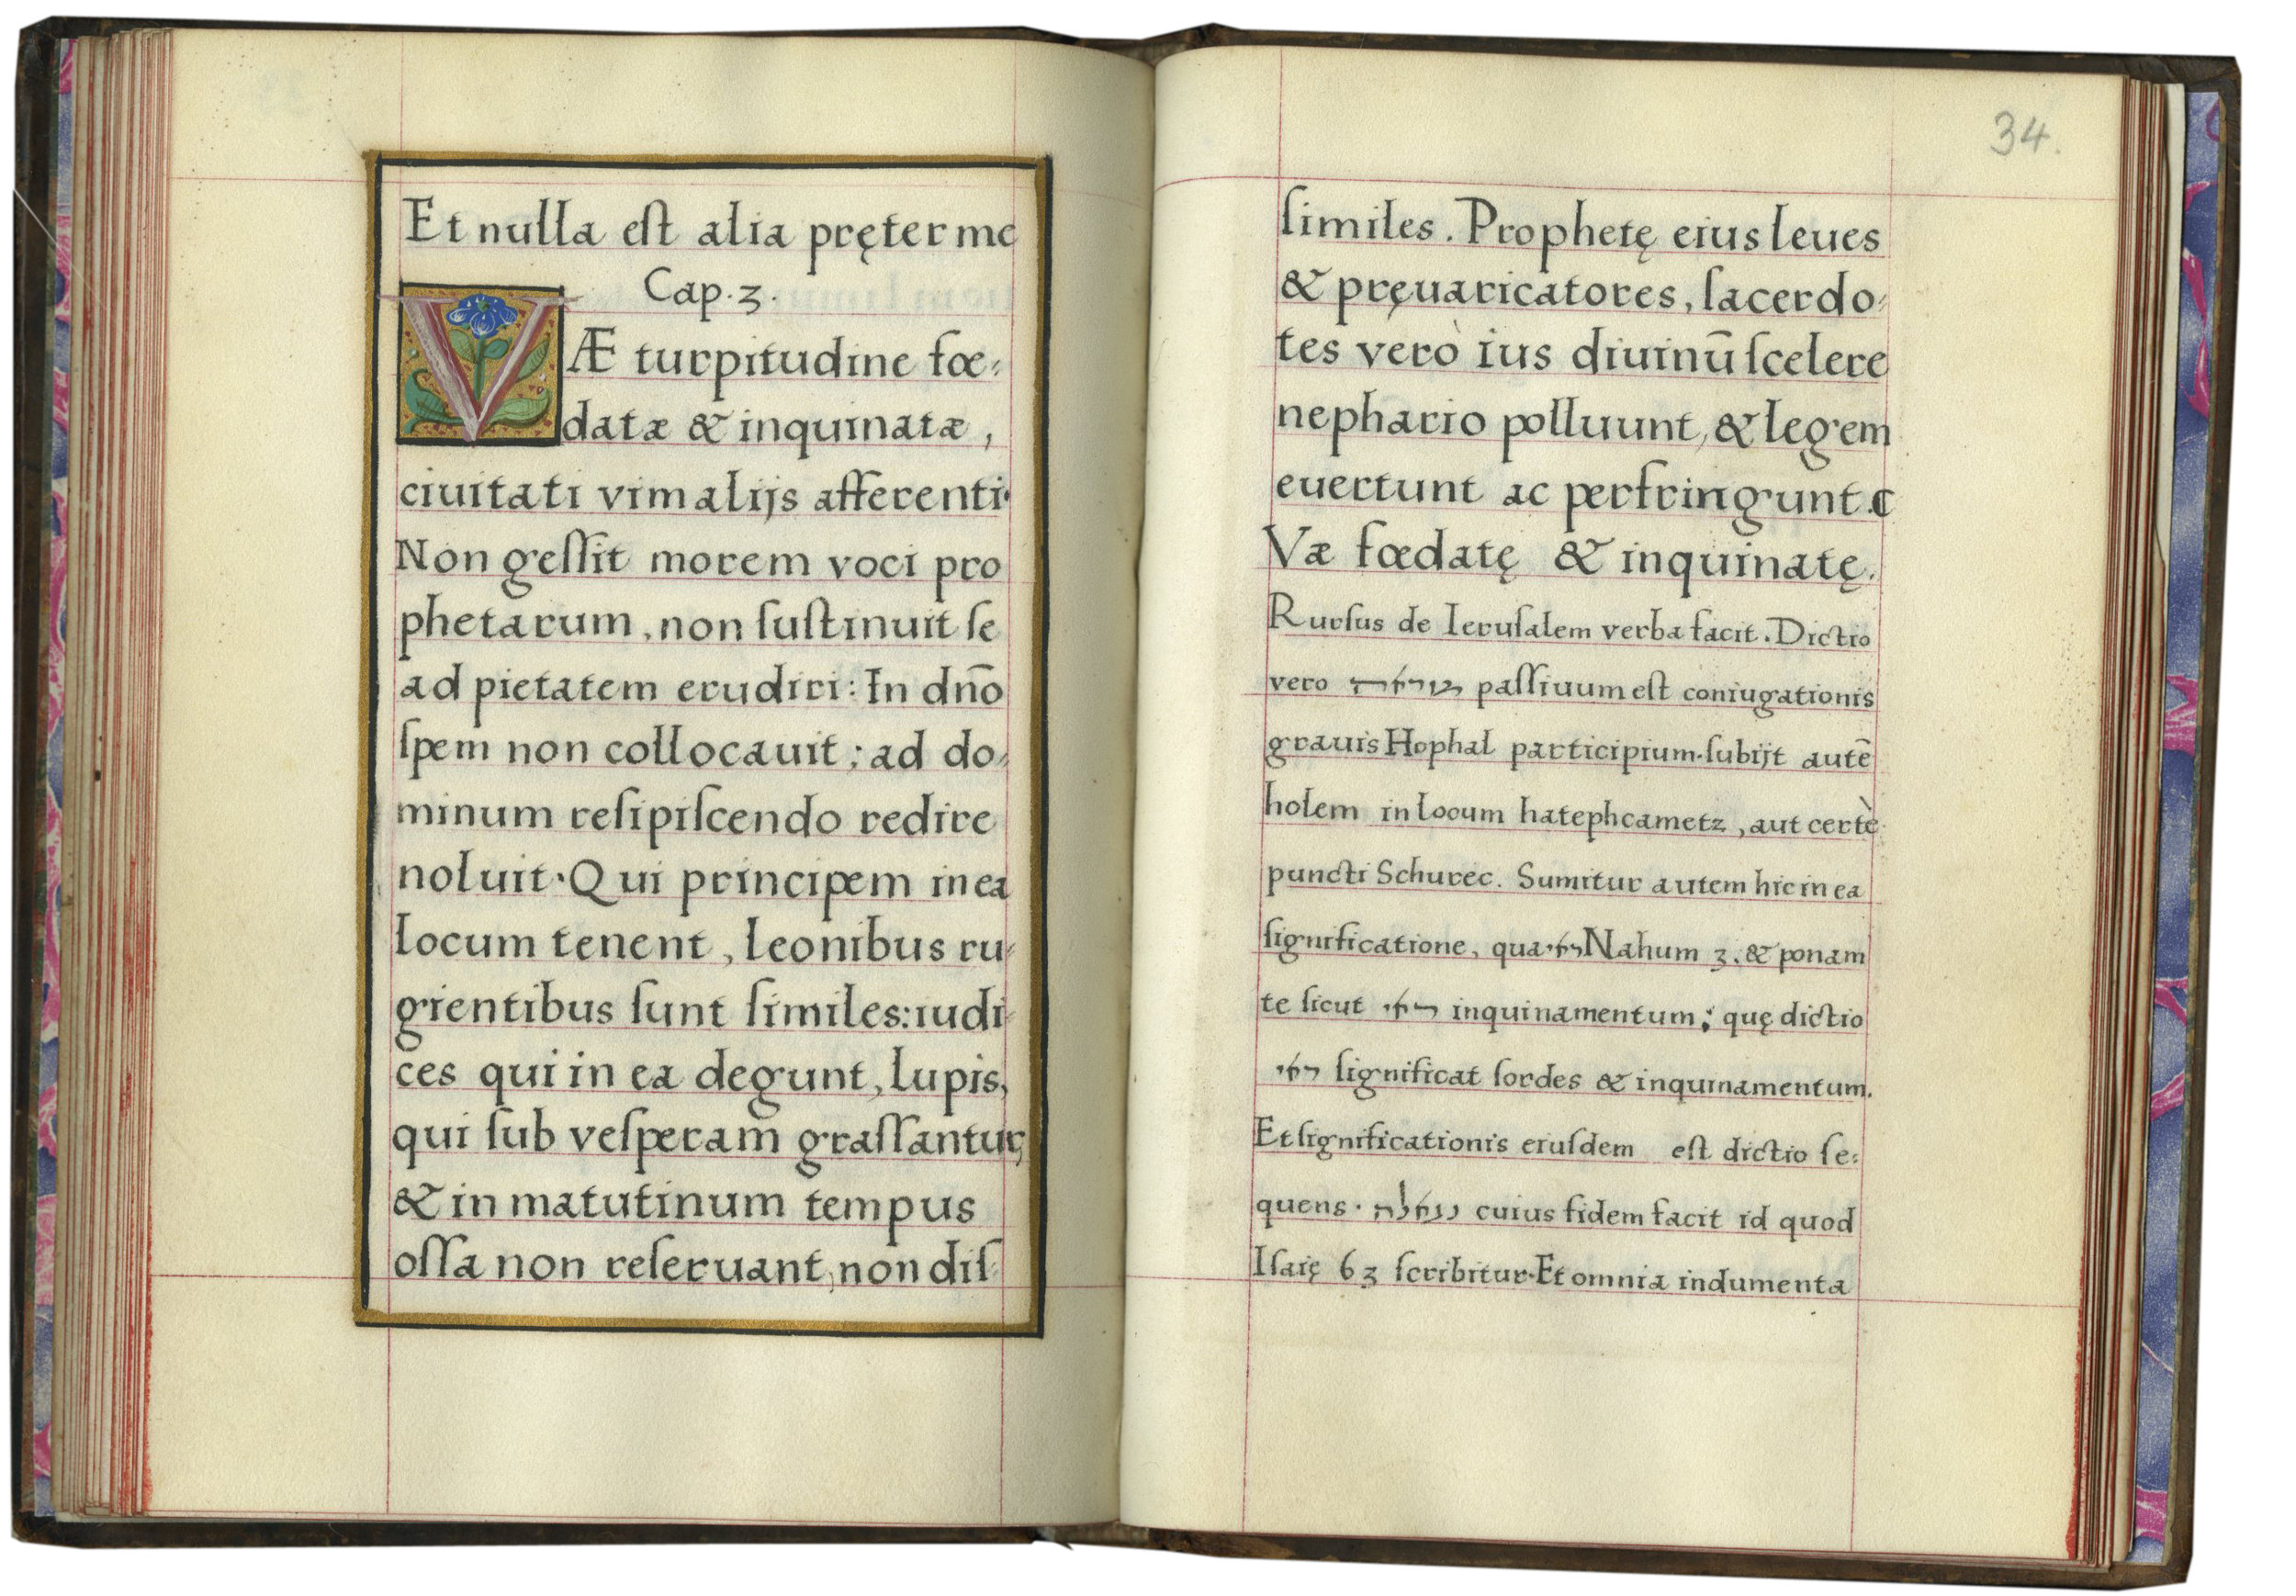 Et nulla est alia pręter me
Cap. 3.
VÆ turpitudine fœ-
datæ & inquinatæ,
ciuitati vim alijs afferenti.
Non geſſit morem voci pro
phetarum, non ſuſtinuit ſe
ad pietatem erudiri: In dn̄o
ſpem non collocauit; ad do-
minum reſipiſcendo redire
noluit. Qui principem in ea
locum tenent, leonibus ru-
gientibus ſunt ſimiles: iudi-
ces qui in ea degunt, lupis,
qui ſub veſperam graſſantur,
& in matutinum tempus
oſſa non reſeruant, non diſ-
34.
ſimiles. Prophetę eius leues
& pręuaricatores, ſacerdo-
tes verò ius diuinū ſcelere
nephario polluunt, & legem
euertunt ac perfringunt. ⸿
Væ fœdatę & inquinatę.
Rurſus de Ieruſalem verba facit. Dictio
vero paſſiuum est coniugationis
grauis Hophal participium. ſubijt autē
holem in locum hatephcametz, aut certè
puncti Schurec. Sumitur autem hic in ea
ſignificatione, qua Nahum 3. & ponam
te ſicut inquinamentum; quę dictio
ſignificat ſordes & inquinamentum.
Et ſignificationis eiuſdem eſt dictio ſe-
quens. cuius fidem facit id quod
Iſaię 63 ſcribitur. Et omnia indumenta